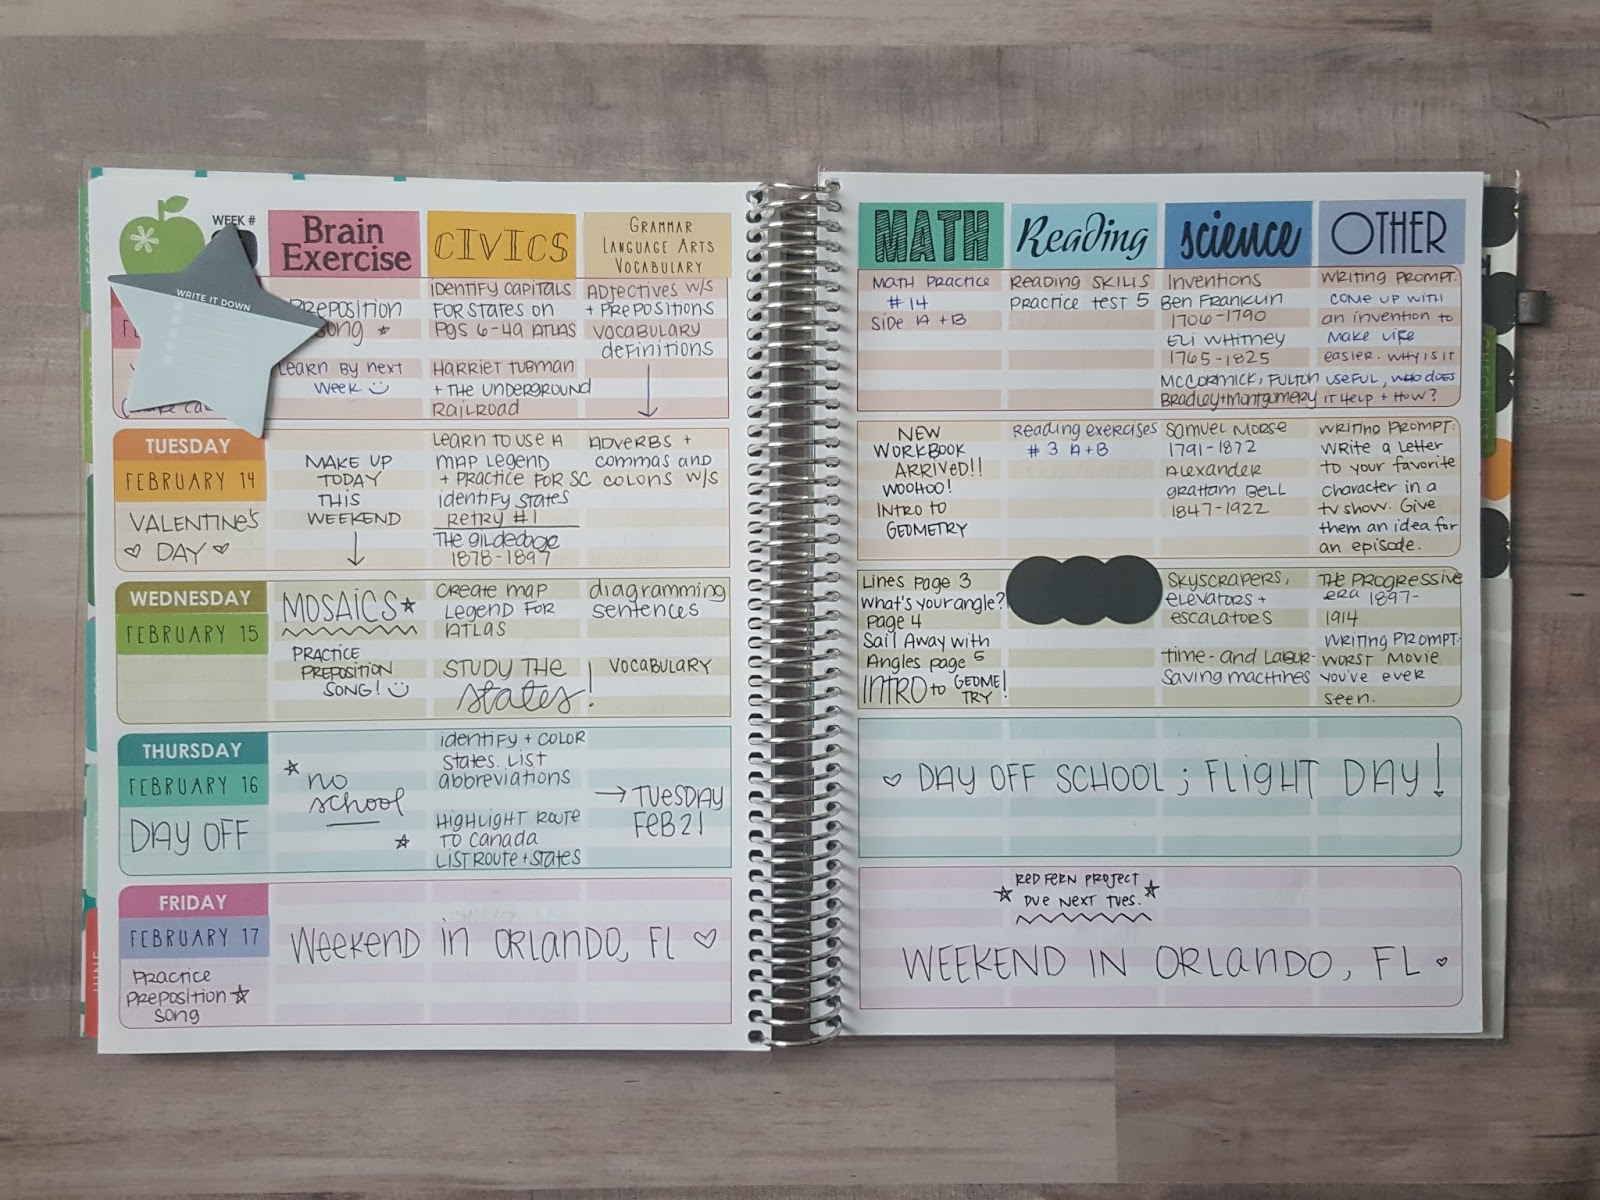 WEEK #
Brain
Exercise
CIVICS
GRAMMAR
LANGUAGE ARTS
VOCABULARY
WRITE IT DOWN
PREPOSITION
song
LEARN BY NEXT
WEEK
IDENTIFY CAPITALS
FOR STATES ON
PGS 6-49 ATLAS
HARRIET TUBMAN
+ THE UNDERGROUND
RAILROAD
ADJECTIVES W/S
+ PREPOSITIONS
VOCABULARY
definitions
TUESDAY
FEBRUARY 14
VALENTINE'S
DAY
MAKE UP
TODAY
THIS
WEEKEND
LEARN TO USE A
MAP LEGEND
+ PRACTICE FOR SC
identify states
RETRY #1
THE gildedage
1878-1897
ADVERBS +
commas AND
COLONS W/S
WEDNESDAY
FEBRUARY 15
MOSAICS
PRACTICE
PREPOSITION
SONG!
CREATE MAP
LEGEND FOR
ATLAS
STUDY THE
states!
diagramming
sentences
VOCABULARY
THURSDAY
FEBRUARY 16
DAY OFF
no
school
identify + COLOR
states. LIST
abbreviations
HIGHLIGHT ROUTE
TO CANADA
LIST ROUTE + STATES
→ TUESDAY
FEB 21
FRIDAY
FEBRUARY 17
PRACTICE
PREPOSITION
song
WEEKEND IN ORLANDO, FL
MATH
Reading
science
OTHER
MATH PRACTICE
#14
SIDE A + B
READING SKILLS
PRACTICE TEST 5
INVENTIONS
BEN FRANKLIN
1706-1790
ELI WHITNEY
1765-1825
MCCORMICK, FULTON
BRADLEY+MONTGOMERY
WRITING PROMPT:
COME UP WITH
an invention to
MAKE LIFE
easier. WHY IS IT
USEFUL, WHO DOES
IT HELP + HOW?
NEW
WORKBOOK
ARRIVED!!
WOOHOO!
INTRO TO
GEOMETRY
Reading exercises
#3 A+B
SAMUEL MORSE
1791-1872
Alexander
graham BELL
1847-1922
WRITING PROMPT:
Write a letter
to your favorite
character in a
tv show. Give
them an idea for
an episode.
Lines page 3
What's your angle?
page 4
Sail Away with
Angles page 5
INTRO to GEOME
TRY!
SKYSCRAPERS,
elevators +
escalators
time- and LABOR-
Saving machines
THE PROGRESSIVE
era 1897-
1914
WRITING PROMPT:
WORST MOVIE
you've ever
seen.
DAY OFF SCHOOL; FLIGHT DAY!
RED FERN PROJECT
DUE NEXT TUES.
WEEKEND IN ORLANDO, FL